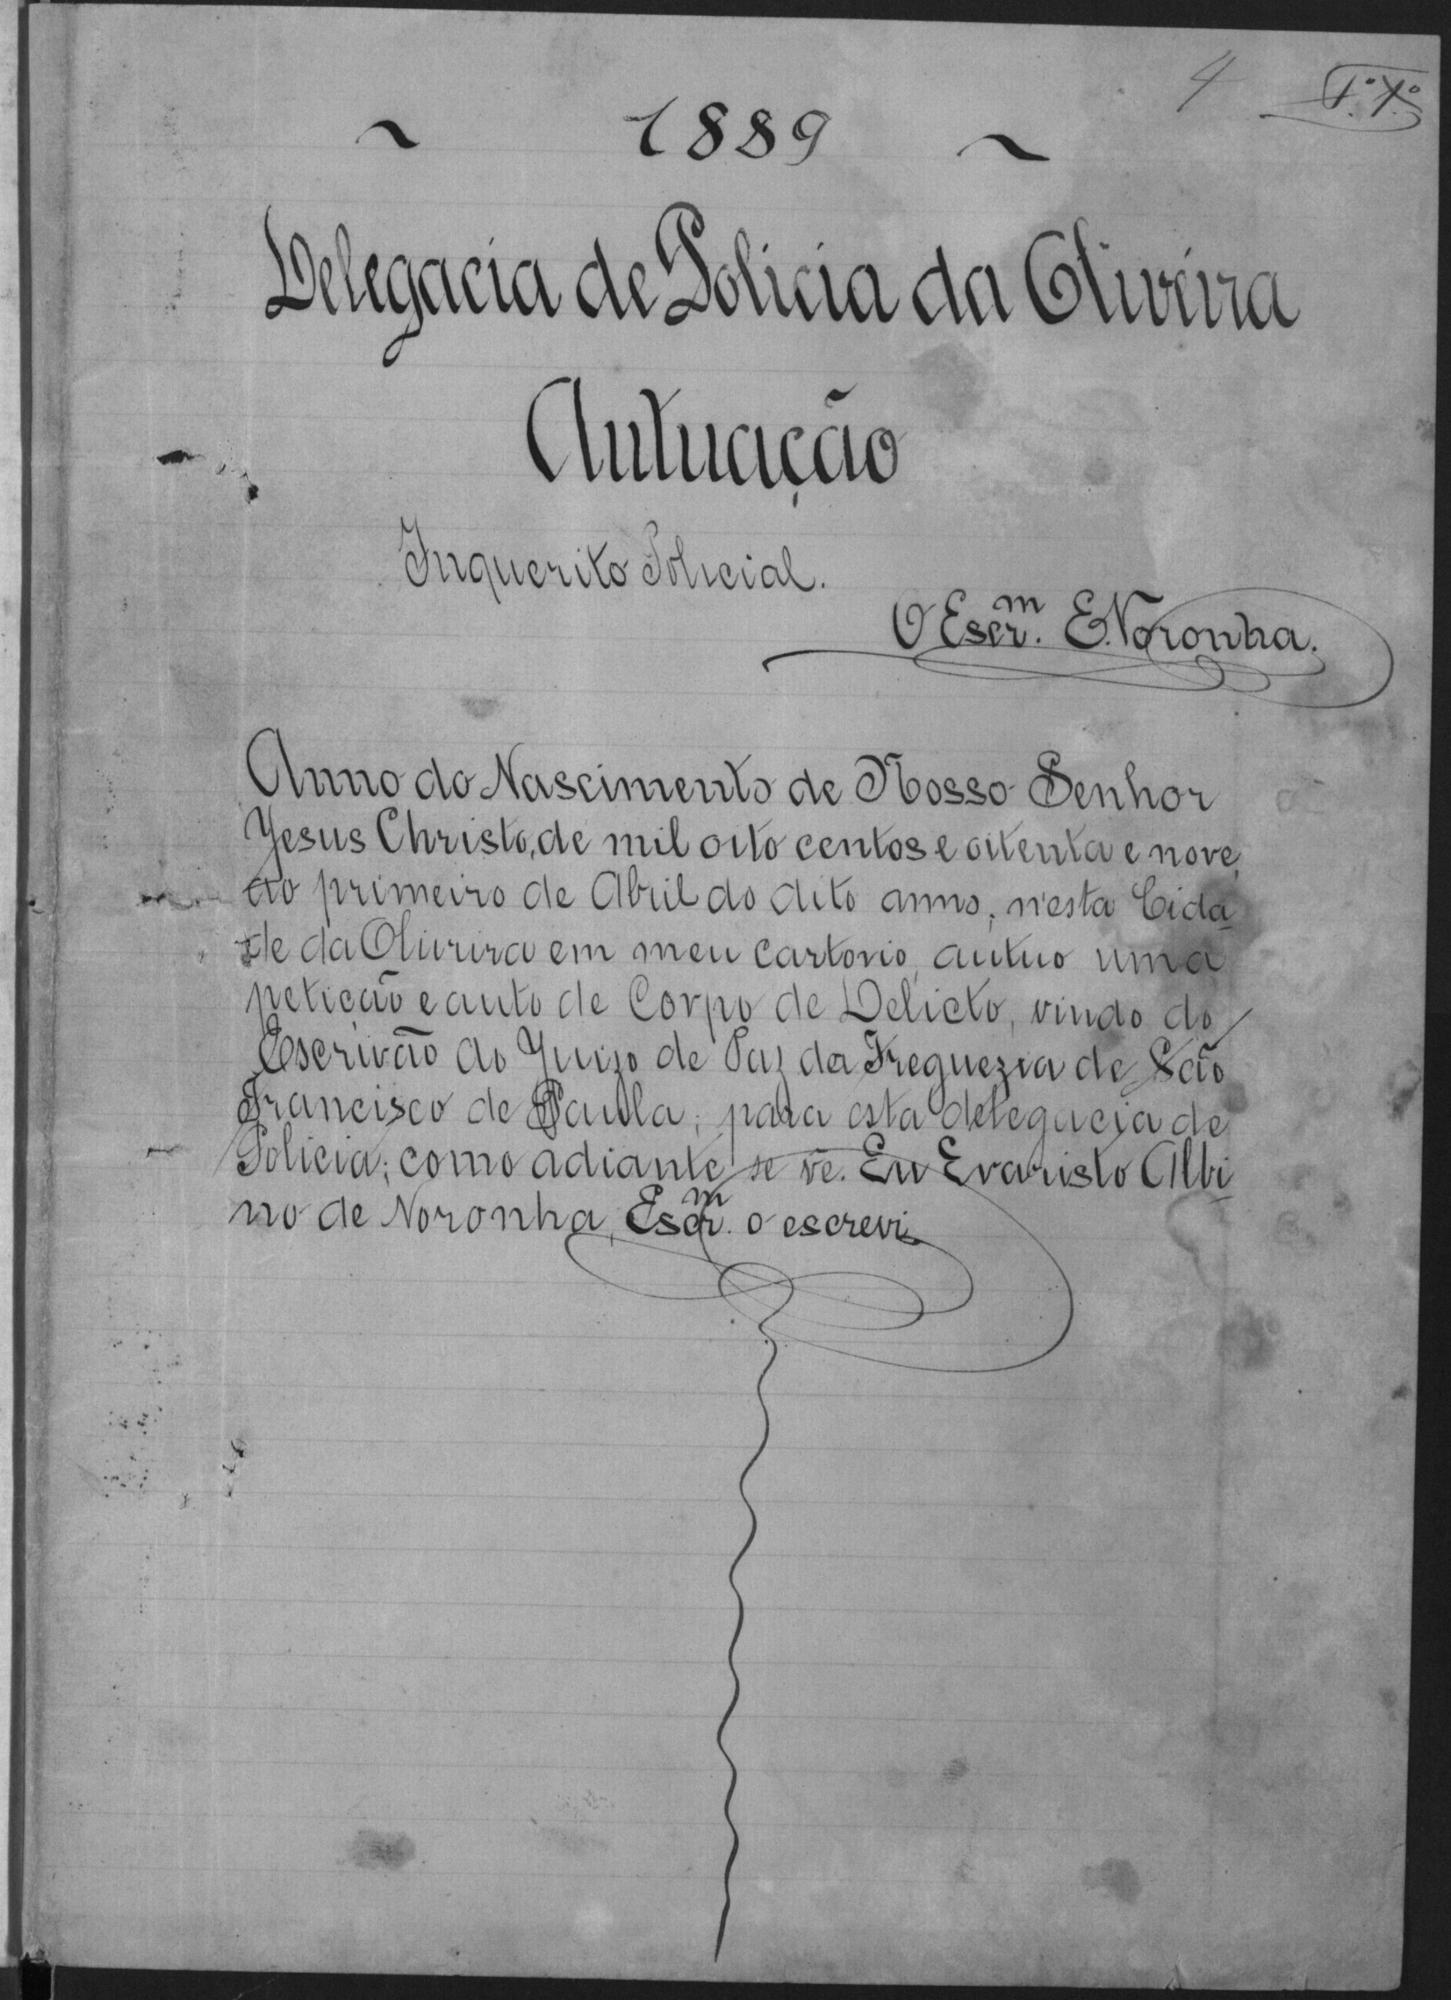 4
~ 1889 ~
Delegacia de Policia da Oliveira
Autuação
Inquerito Policial.
O Escr.m E. Noronha.
Anno do Nascimento de Nosso Senhor
Jesus Christo, de mil oito centos e oitenta e nove,
ao primeiro de Abril do dito anno, n'esta Cida-
de da Oliveira em meu cartorio, autuo uma
petição e auto de Corpo de Delicto, vindo do
Escrivão do Juizo de Paz da Freguezia de São
Francisco de Paula; para esta delegacia de
Policia; como adiante se vê. Eu Evaristo Albi-
no de Noronha, Escr.m o escrevi.